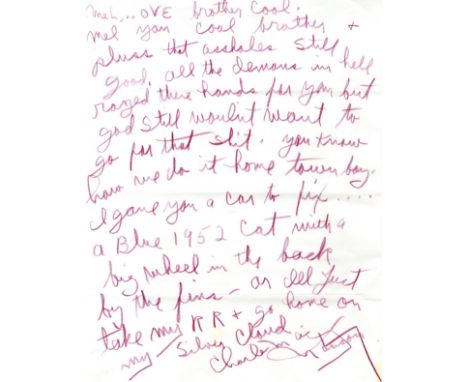 brother cool.
mel you cool brother +
pluss that assholes still
good, all the demons in hell
raged there hands for you but
god still wouln't want to
go for that shit. you know
how we do it home town boy.
I gave you a car to fix.....
a Blue 1952 Cat with a
big wheel in the back
by the fins - or Ill Just
take my RR + go home on
my Silver Cloud
Charles Manson